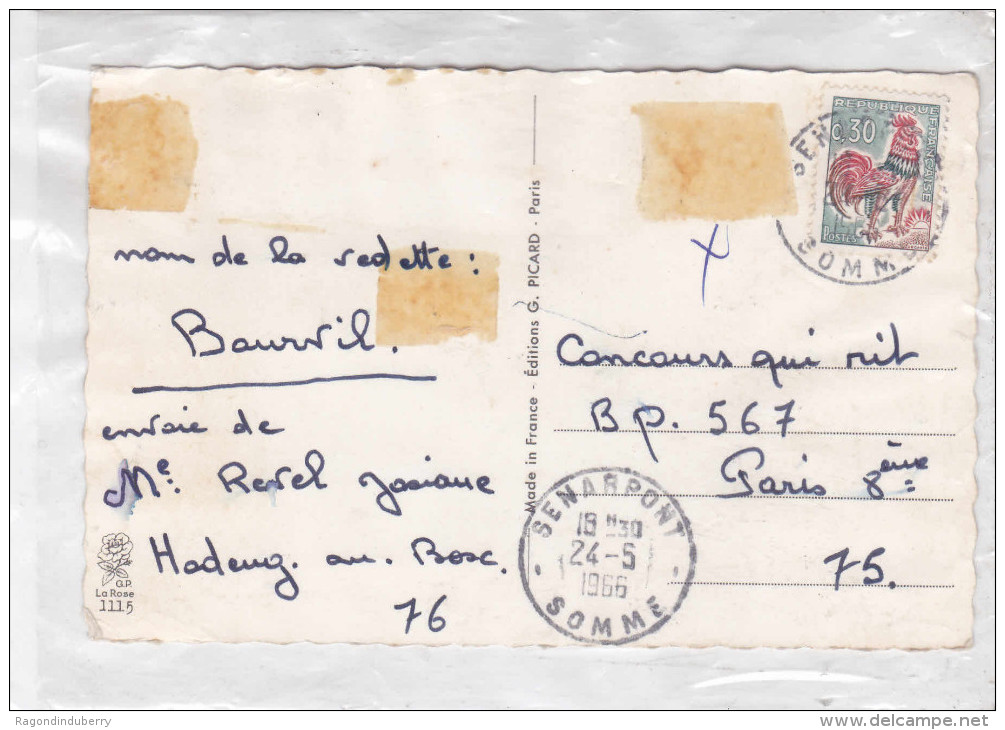 nom de la vedette :
Bourvil.
envoie de
Me. Revel Josiane
Hadeng. au. Bosc.
76
G.P.
La Rose
1115
Made in France - Éditions G. PICARD - Paris
REPUBLIQUE FRANÇAISE
0,30
POSTES
SOMME
Concours qui rit
B p. 567
Paris 8ème
75.
SENARPONT
18 H30
24-5
1966
SOMME
Ragondinduberry
www.delcampe.net